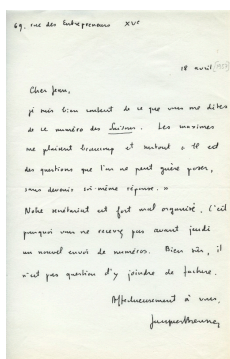 69, rue des Entrepreneurs XVe
18 avril
Cher Jean,
je suis bien content de ce que vous me dites
de ce numéro des Saisons. Les maximes
me plaisent beaucoup et surtout « Il est
des questions que l'on ne peut guère poser,
sans devenir soi-même réponse. »
Notre secrétariat est fort mal organisé. C'est
pourquoi vous ne recevrez pas avant jeudi
un nouvel envoi de numéros. Bien sûr, il
n'est pas question d'y joindre de facture.
Affectueusement à vous,
Jacques